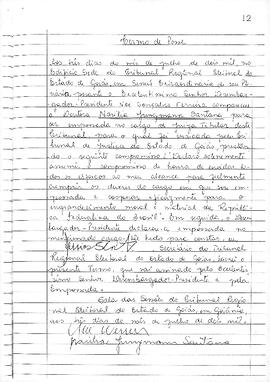 12
Termo de Posse
Aos seis dias do mês de julho de dois mil, no
Edifício Sede do Tribunal Regional Eleitoral do
Estado de Goiás, em Sessão Extraordinária do seu Ple-
nário, presente o Excelentíssimo Senhor Desembar-
gador-Presidente Gonçalves Ferreira compareceu
a Doutora Marília Jungmann Santana para
ser empossada no cargo de Juíza Titular deste
Tribunal para o qual foi indicada pelo Tri-
bunal de Justiça do Estado de Goiás, prestan-
do o seguinte compromisso: "Declaro solenemente
assumir o compromisso de honra de envidar to-
dos os esforços ao meu alcance para fielmente
cumprir os deveres do cargo em que sou em-
possada e cooperar fielmente para o
engrandecimento moral e material da Repúbli-
ca Federativa do Brasil". Em seguida, o Desem-
bargador-Presidente declarou-a empossada no
mencionado cargo. Para constar eu,
Secretário do Tribunal
Regional Eleitoral do Estado de Goiás, lavrei o
presente Termo, que vai assinado pelo Excelentís-
simo Senhor Desembargador-Presidente e pela
Empossada.
Sala das Sessões do Tribunal Regio-
nal Eleitoral do Estado de Goiás, em Goiânia,
aos seis dias do mês de julho de dois mil.
Marília Jungmann Santana